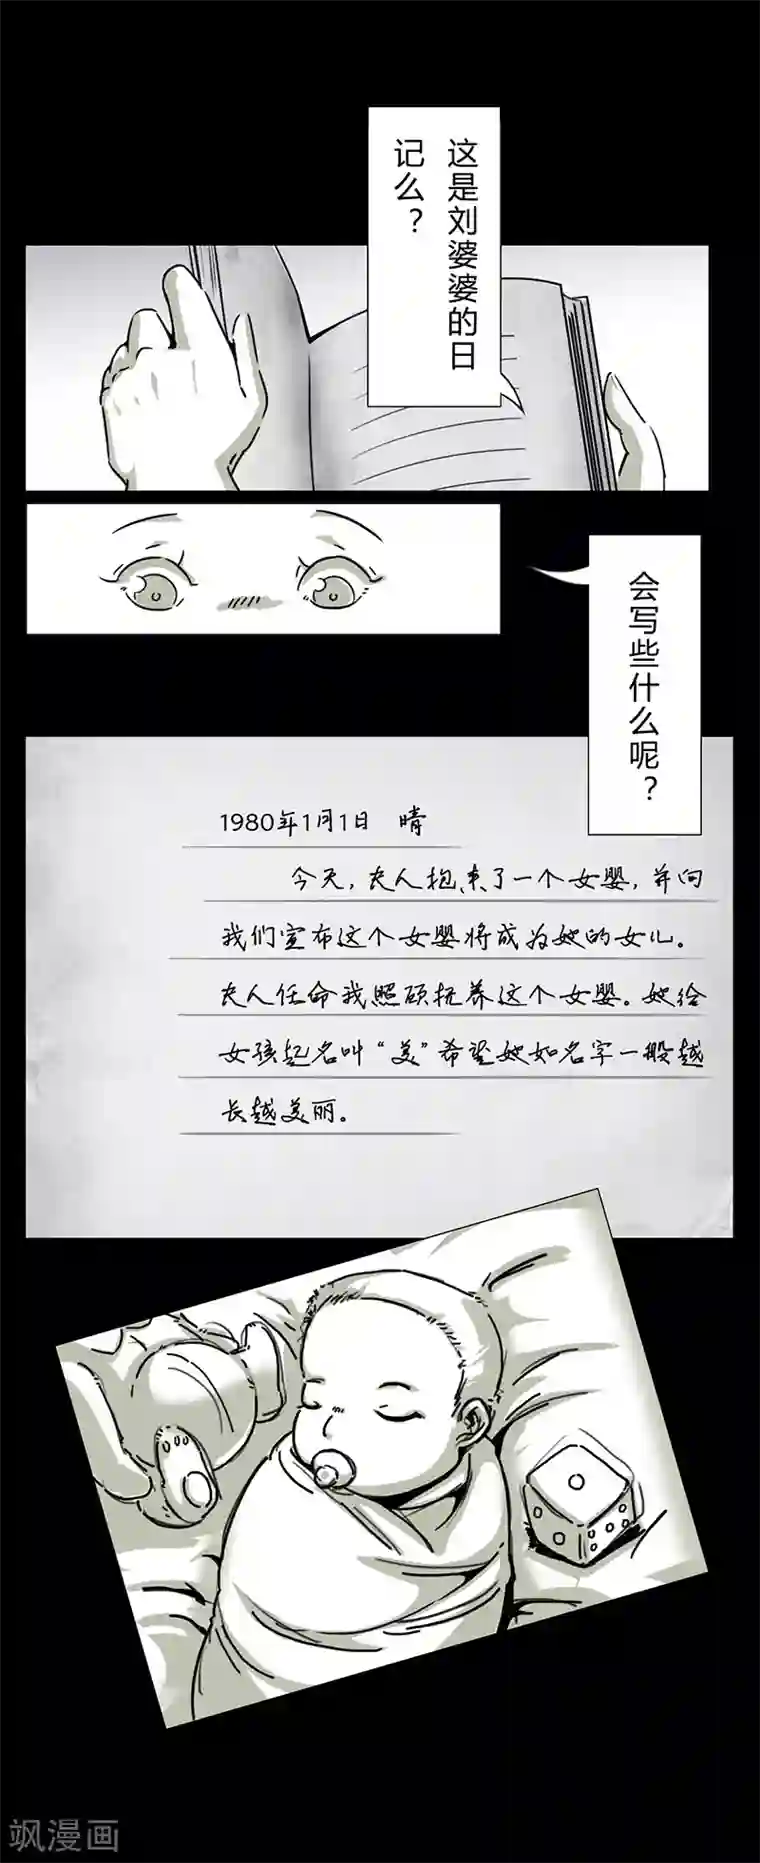 这是刘婆婆的日
记么？
会写些什么呢？
1980年1月1日 晴
今天，夫人抱来了一个女婴，并向
我们宣布这个女婴将成为她的女儿。
夫人任命我照顾抚养这个女婴。她给
女孩起名叫“美”希望她如名字一般越
长越美丽。
飒漫画